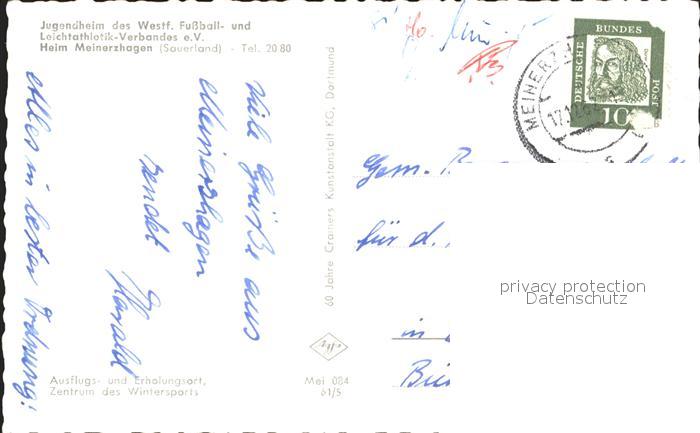 Jugendheim des Westf. Fußball- und
Leichtathletik-Verbandes e.V.
Heim Meinerzhagen (Sauerland) - Tel. 20 80
Viele Grüße aus
Meinerzhagen
sendet
Harald
Alles in bester Ordnung!
Ausflugs- und Erholungsort,
Zentrum des Wintersports
60 Jahre Cramers Kunstanstalt KG, Dortmund
Mei 084
61/5
DEUTSCHE BUNDES POST
10
MEINERZH
Gem.
für d.
in
privacy protection
Datenschutz